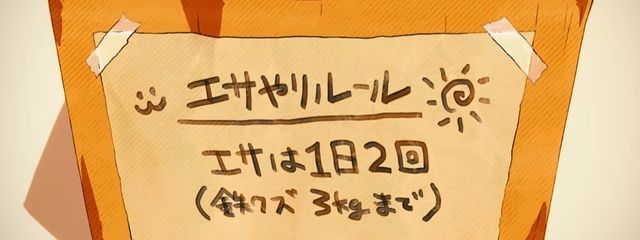 エサやりルール
エサは1日2回
(鉄クズ 3kgまで)